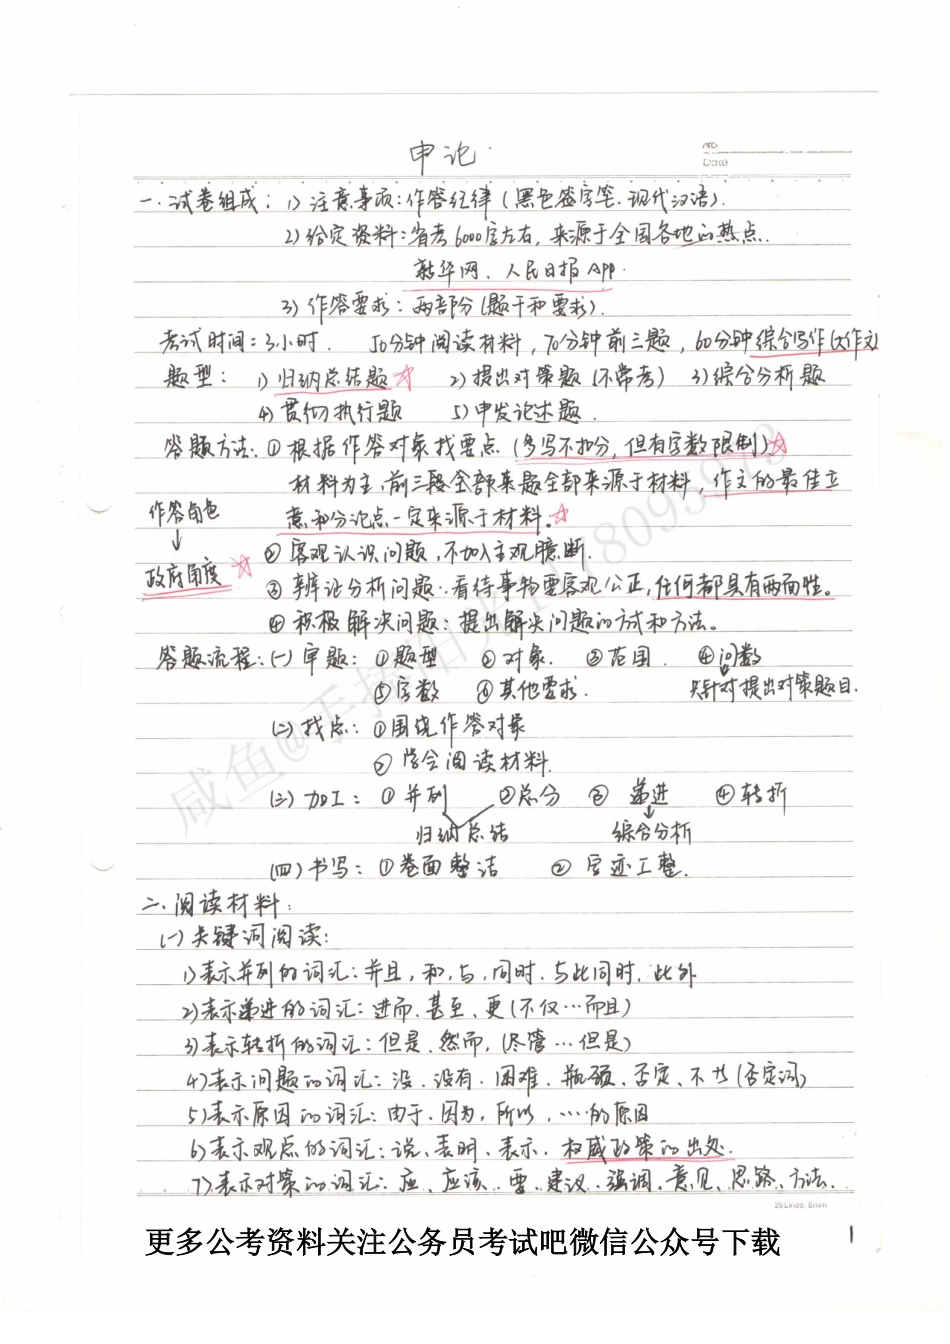 申论
No
Date
一.试卷组成：1)注意事项：作答纪律（黑色签字笔.现代汉语）.
2)给定资料：省考6000字左右，来源于全国各地的热点.
新华网、人民日报App.
3)作答要求：两部分（题干和要求）.
考试时间：3小时. 50分钟阅读材料，70分钟前三题，60分钟综合写作（大作文）
题型： 1)归纳总结题☆ 2)提出对策题（不常考） 3)综合分析题
4)贯彻执行题 5)申发论述题.
答题方法：①根据作答对象找要点（多写不扣分，但有字数限制）☆
材料为主，前三段全部来题全部来源于材料，作文的最佳立
意和分论点一定来源于材料。☆
作答角色
↓
政府角度☆
②客观认识问题，不加入主观臆断.
③辨证分析问题：看待事物要客观公正，任何都具有两面性。
④积极解决问题：提出解决问题的方式和方法。
答题流程：(一)审题：①题型 ②对象. ③范围. ④问数
⑤字数 ⑥其他要求. 只针对提出对策题目.
(二)找点：①围绕作答对象
②学会阅读材料.
(三)加工：①并列 ②总分 ③递进 ④转折
归纳总结 综合分析
(四)书写：①卷面整洁 ②字迹工整.
二.阅读材料：
(一)关键词阅读：
1)表示并列的词汇：并且，和，与，同时、与此同时、此外
2)表示递进的词汇：进而、甚至、更（不仅…而且）
3)表示转折的词汇：但是、然而，（尽管…但是）
4)表示问题的词汇：没、没有、困难、瓶颈、否定、不 （否定词）
5)表示原因的词汇：由于、因为，所以，……的原因
6)表示观点的词汇：说、表明、表示、权威政策的出处.
7)表示对策的词汇：应、应该、要、建议、强调、意见、思路、方法.
29 Lines, 8mm
更多公考资料关注公务员考试吧微信公众号下载
1